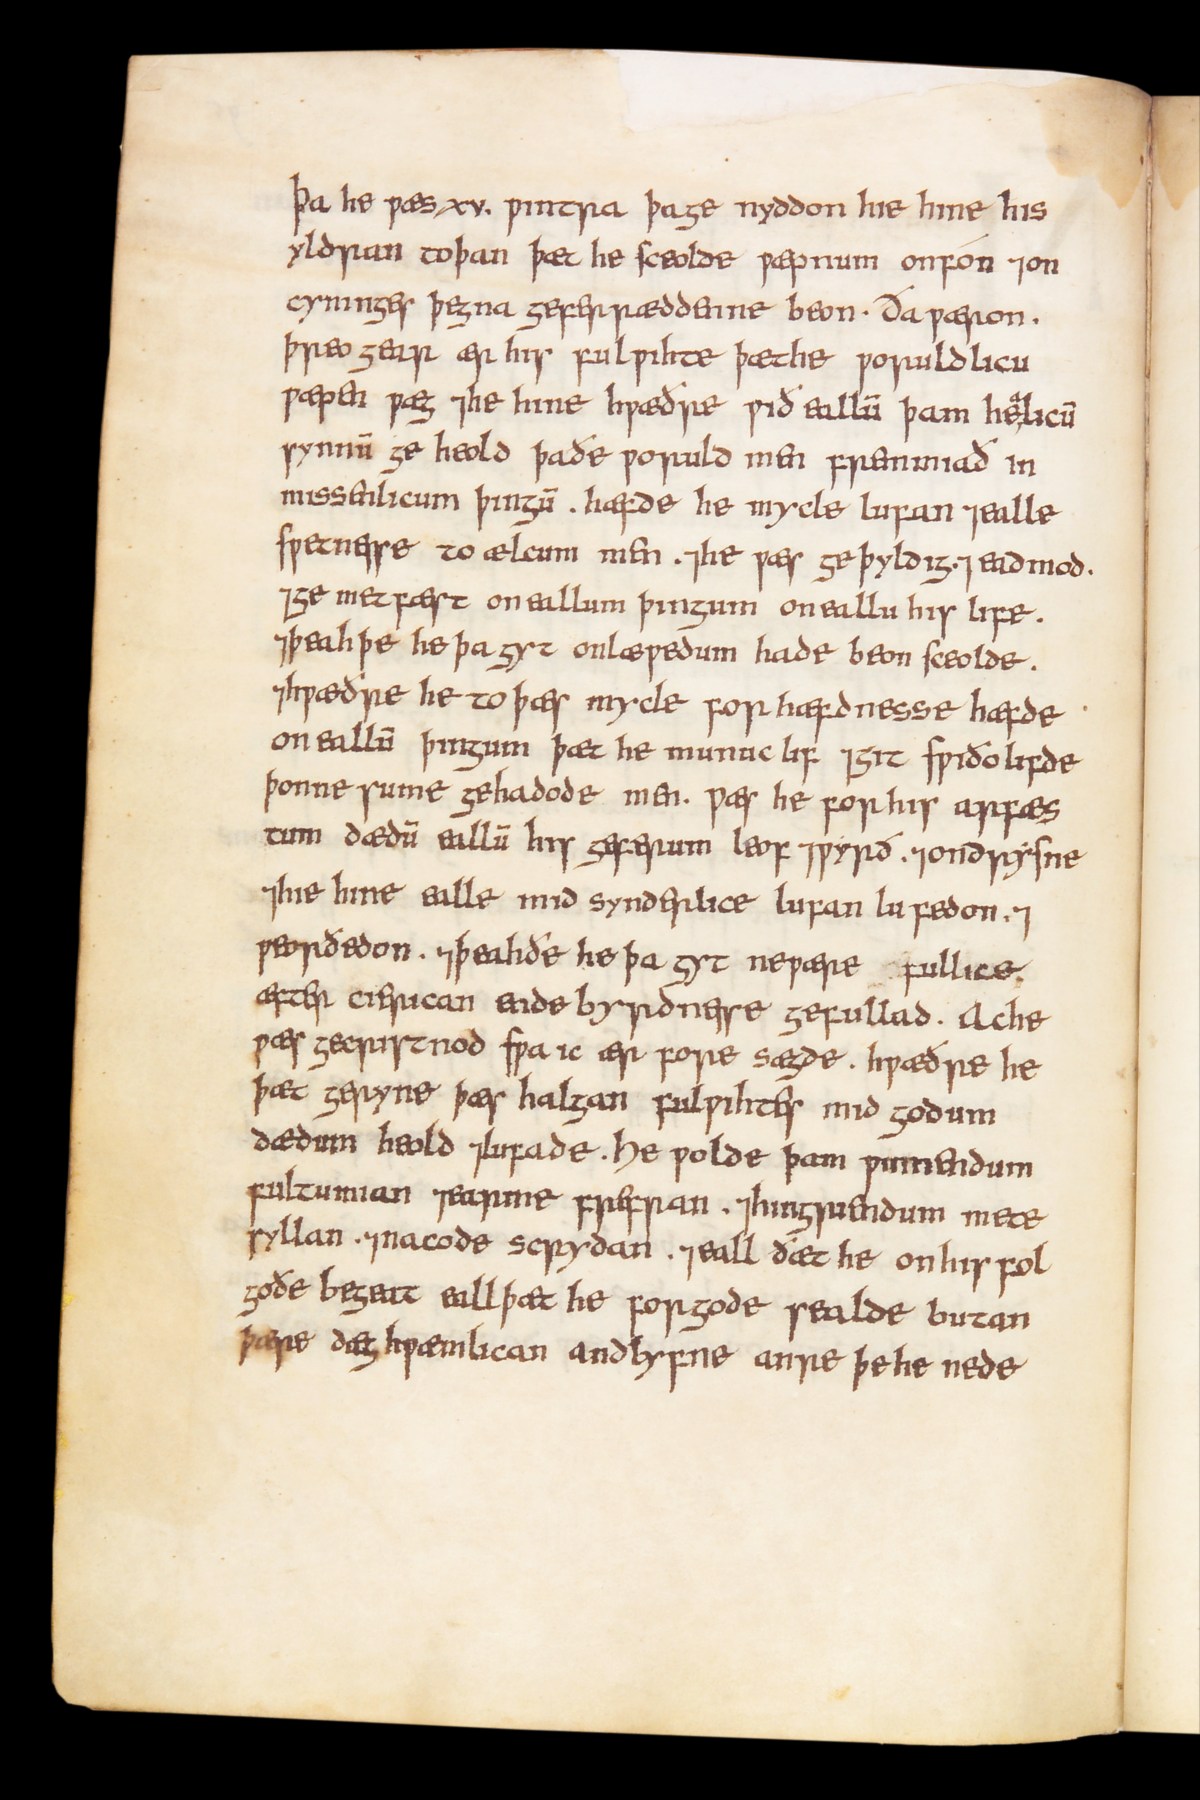 þa he ƿæs xv. ƿintra þage nyddon hie hine his
yldran toþan þæt he sceolde ƿæpnum onfón ⁊on
cyninges þegna geferræddenne beon. Ða ƿæron.
þreo gear ær his fulƿihte þæthe ƿoruldlicu
ƿæpen ƿæg ⁊he hine hƿæðre ƿið eallū þam heálicū
synnū ge heold þaðe ƿoruld men fremmað in
missenlicum þingū. hæfde he mycle lufan ⁊ealle
sƿetnesse to ælcum men. ⁊he ƿæs ge þyldig. ⁊eadmod.
⁊ge metfæst oneallum þingum oneallu his life.
⁊þeah þe he þa gyt onlæƿedum hade beon sceolde.
⁊hƿæðre he to þæs mycle forhæfdnesse hæfde
oneallū þingum þæt he munuc lif ⁊git sƿiðo lifde
þonne sume gehadode men. ƿæs he for his arfæs
tum dædū eallū his geferum leof ⁊ƿyrð. ⁊ondrysne
⁊hie hine ealle mid synderlice lufan lufedon. ⁊
ƿeorðedon. ⁊þeahðe he þa gyt neƿære fullice.
æfter cierican endebyrdnesse gefullad. Ache
ƿæs gecristnod sƿa ic ær fore sægde. hƿæðre he
þæt geryne þæs halgan fulƿihtes mid godum
dædum heold ⁊lufade. He ƿolde þam ƿinnendum
fultumian ⁊earme frefran. ⁊hingriendum mete
syllan. ⁊nacode scrydan. ⁊eall ðæt he onhis fol
goðe begeat eall þæt he forgode sealde butan
þære dæghƿæmlican andlyfne anre þe he nede